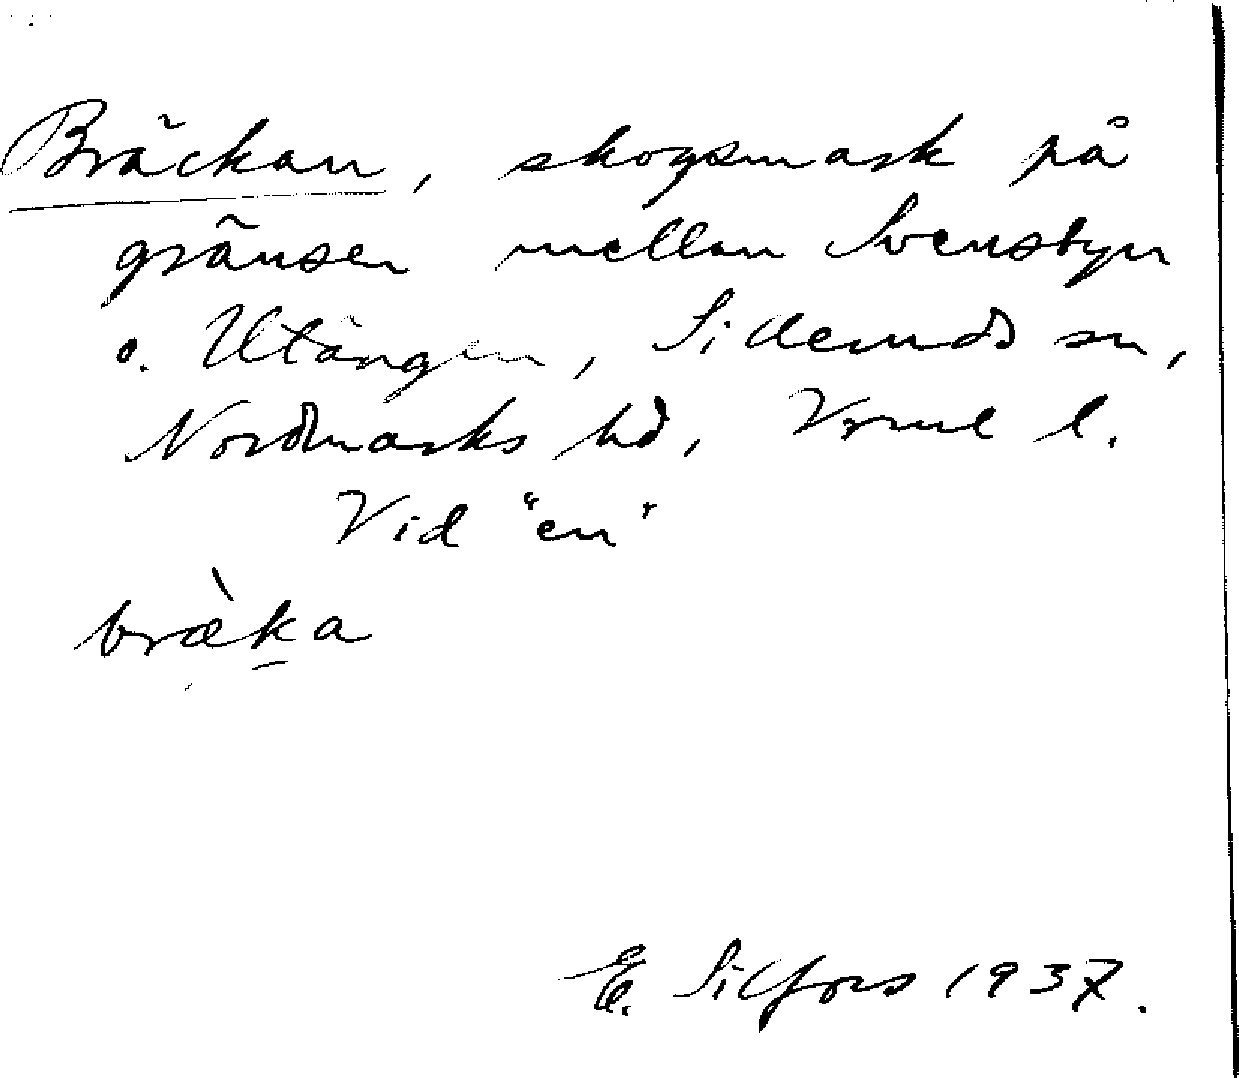 Bräckan, skogsmark på
gränsen mellan Svensbyn
o. Utängen, Silleruds sn,
Nordmarks hd, Vrml l.
Vid "en"
bræ̀ḵa
E. Silfors 1937.